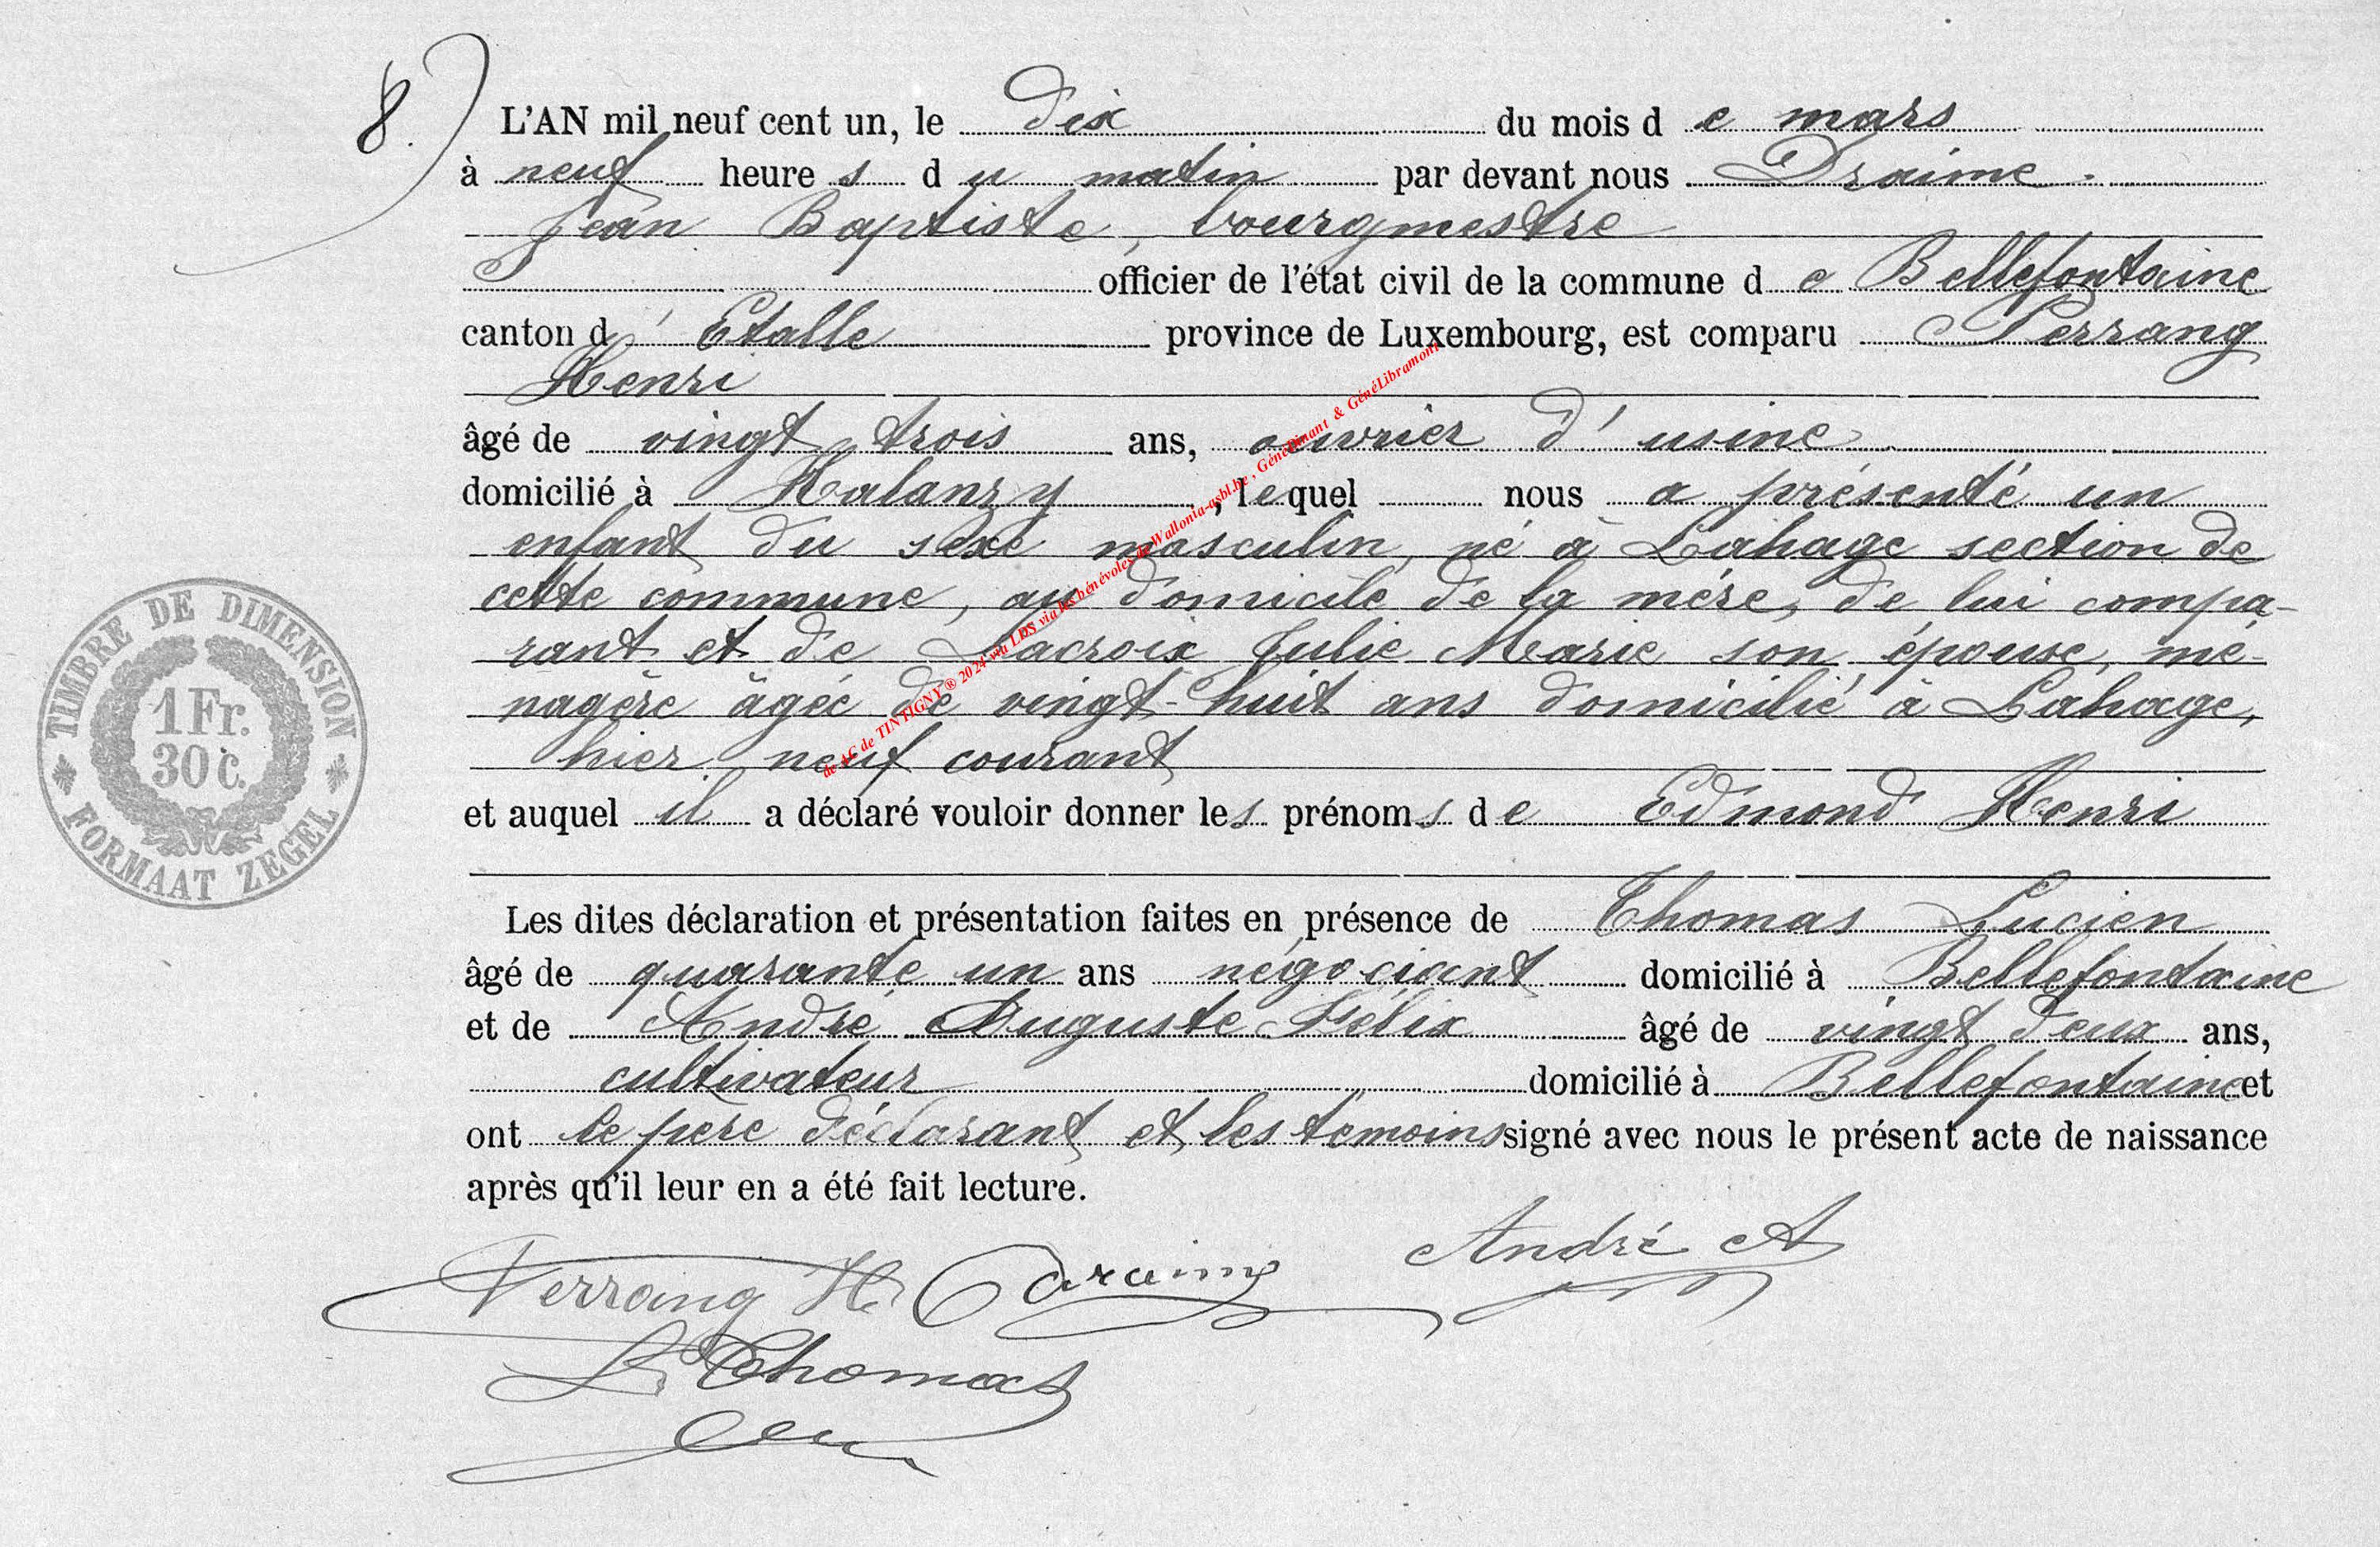 8.
L'AN mil neuf cent un, le dix du mois de mars
à neuf heures du matin par devant nous Draime
Jean Baptiste, bourgmestre
officier de l'état civil de la commune de Bellefontaine
canton d'Etalle province de Luxembourg, est comparu Perrang
Henri
âgé de vingt trois ans, ouvrier d'usine
domicilié à Halanzy, lequel nous a présenté un
enfant du sexe masculin, né à Lahage section de
cette commune, au domicile de la mère, de lui compa-
rant et de Lacroix Julie Marie son épouse, mé-
nagère âgée de vingt-huit ans domicilié à Lahage,
hier neuf courant
et auquel il a déclaré vouloir donner les prénoms de Edmond Henri
Les dites déclaration et présentation faites en présence de Thomas Lucien
âgé de quarante un ans négociant domicilié à Bellefontaine
et de André Auguste Félix âgé de vingt deux ans,
cultivateur domicilié à Bellefontaine et
ont le père déclarant et les témoins signé avec nous le présent acte de naissance
après qu'il leur en a été fait lecture.
Perrang H. Draime André A
L. Thomas
TIMBRE DE DIMENSION
1 Fr.
30 c.
FORMAAT ZEGEL
de AC de TINTIGNY ® 2024 via LDS via les bénévoles de Wallonia-asbl.be, GénéDinant & GénéLibramont